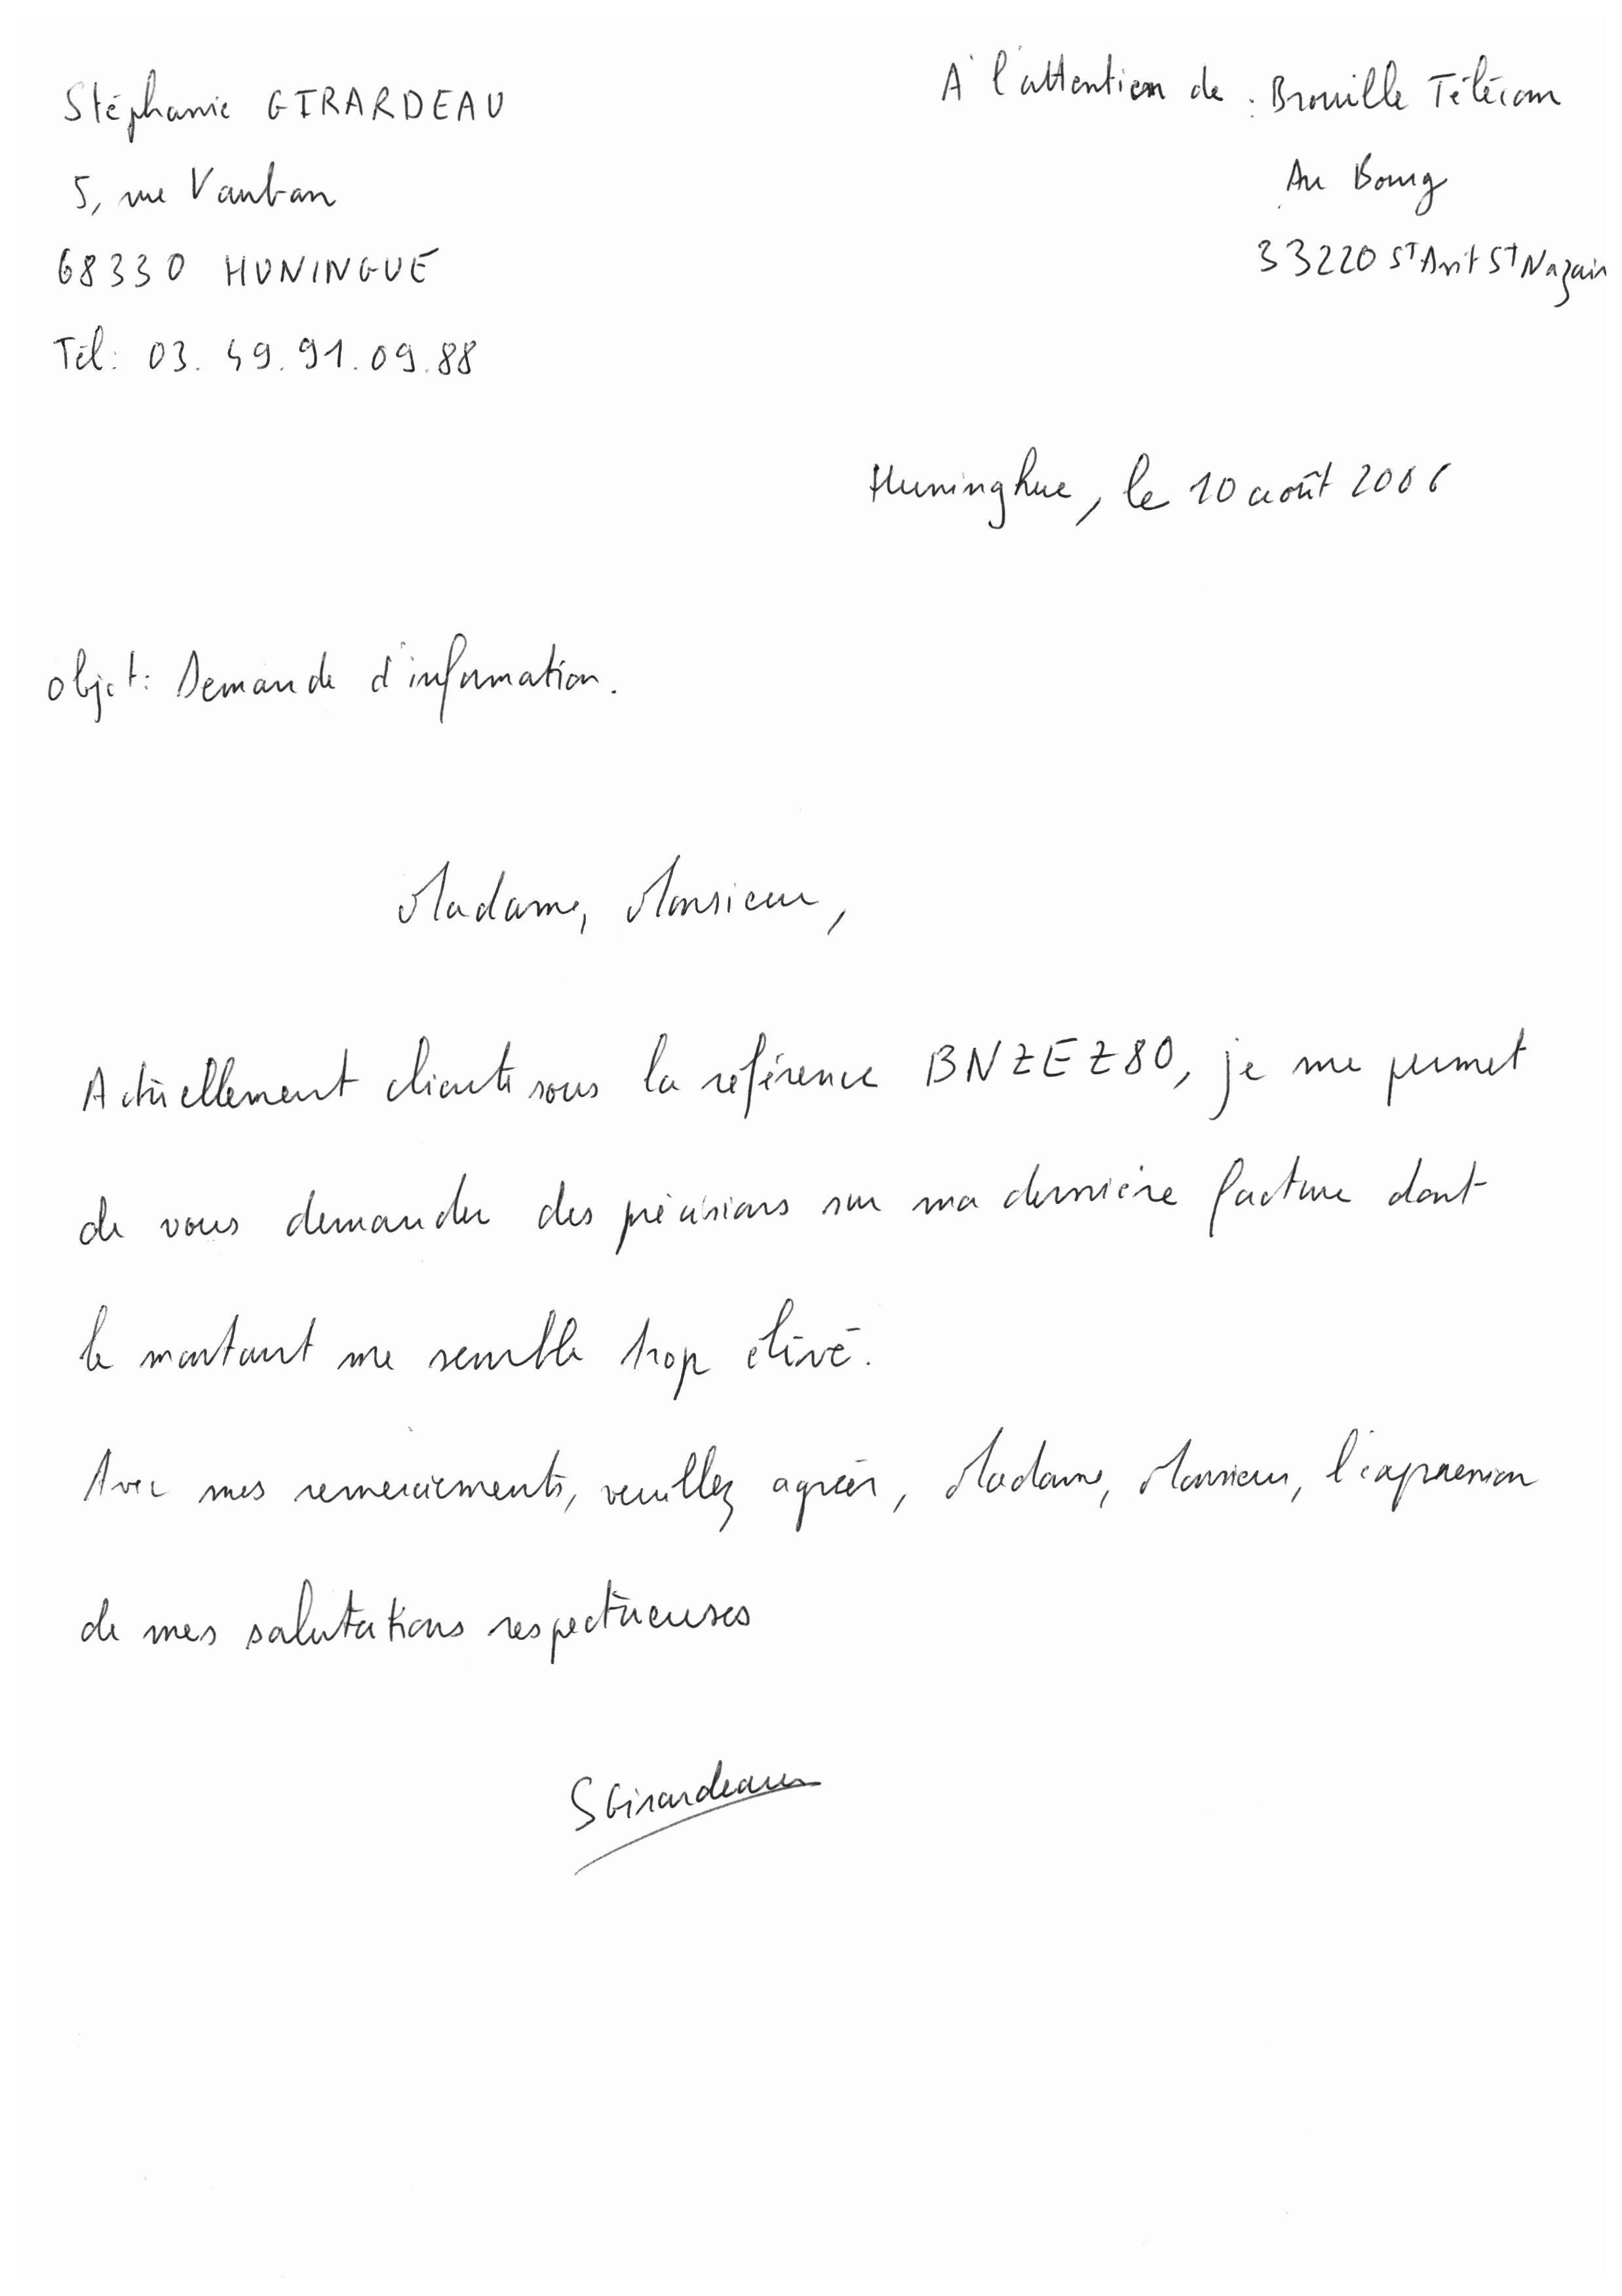 Stéphanie GIRARDEAU
5, rue Vauban
68330 HUNINGUE
Tél: 03.49.91.09.88
A l'attention de : Brouille Télécom
Au Bourg
33220 St Avit St Nazair
Huninghue, le 10 août 2006
Objet: Demande d'information.
Madame, Monsieur,
Actuellement cliente sous la référence BNZEZ80, je me permet
de vous demander des précisions sur ma dernière facture dont
le montant me semble trop élevé.
Avec mes remerciements, veuillez agréer, Madame, Monsieur, l'expression
de mes salutations respectueuses
SGirardeau